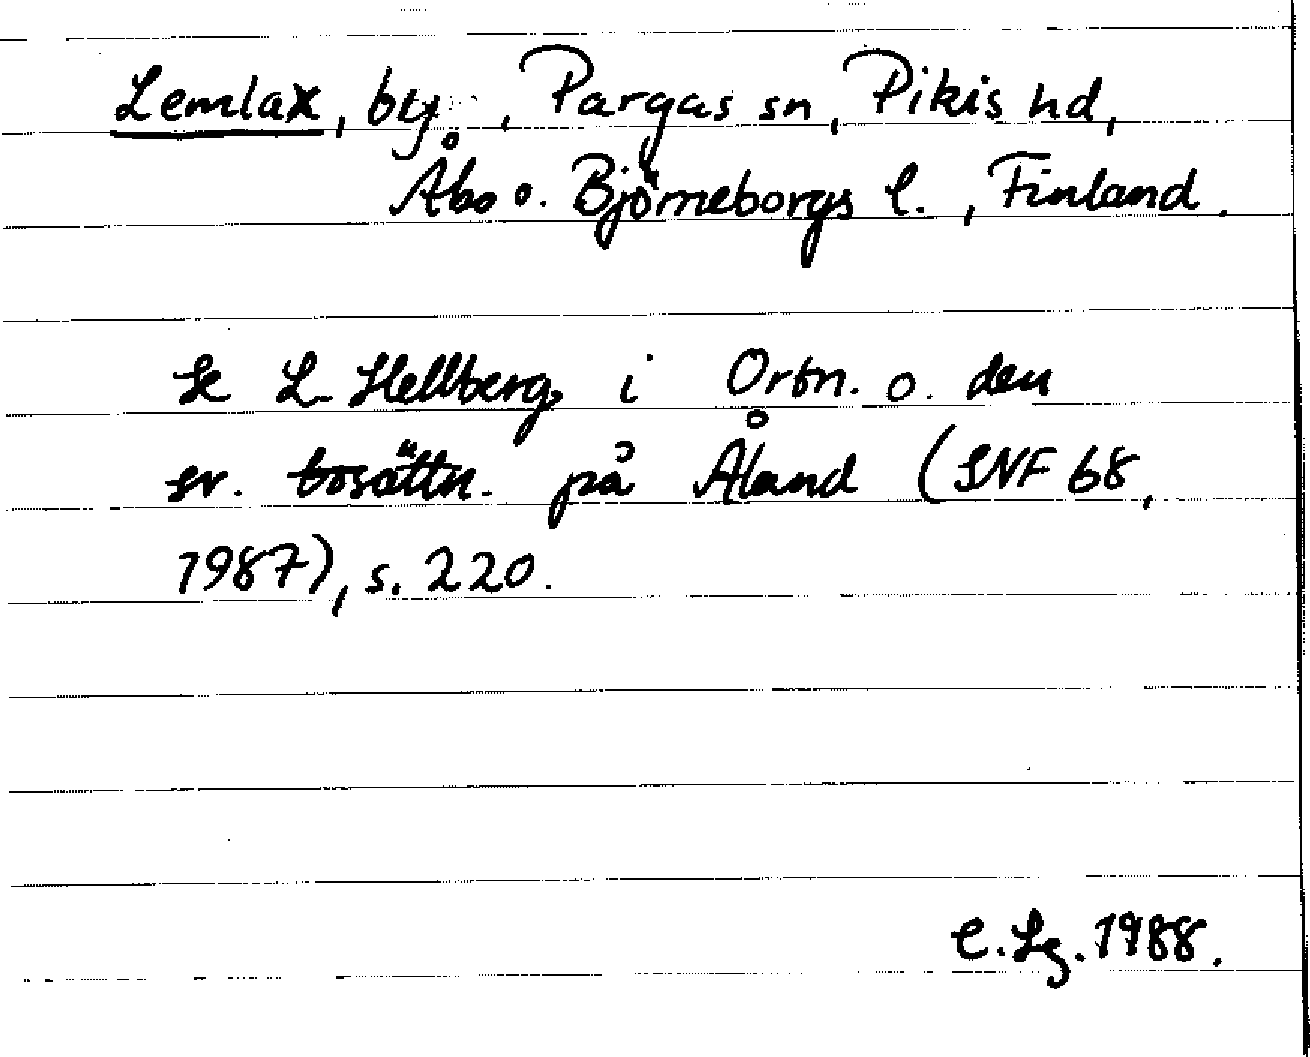 Lemlax, by, Pargas sn, Pikis hd,
Åbo o. Björneborgs l., Finland.
Se L. Hellberg, i Ortn. o. den
sv. bosättn. på Åland (SNF 68,
1987), s. 220.
C. Lg. 1988.